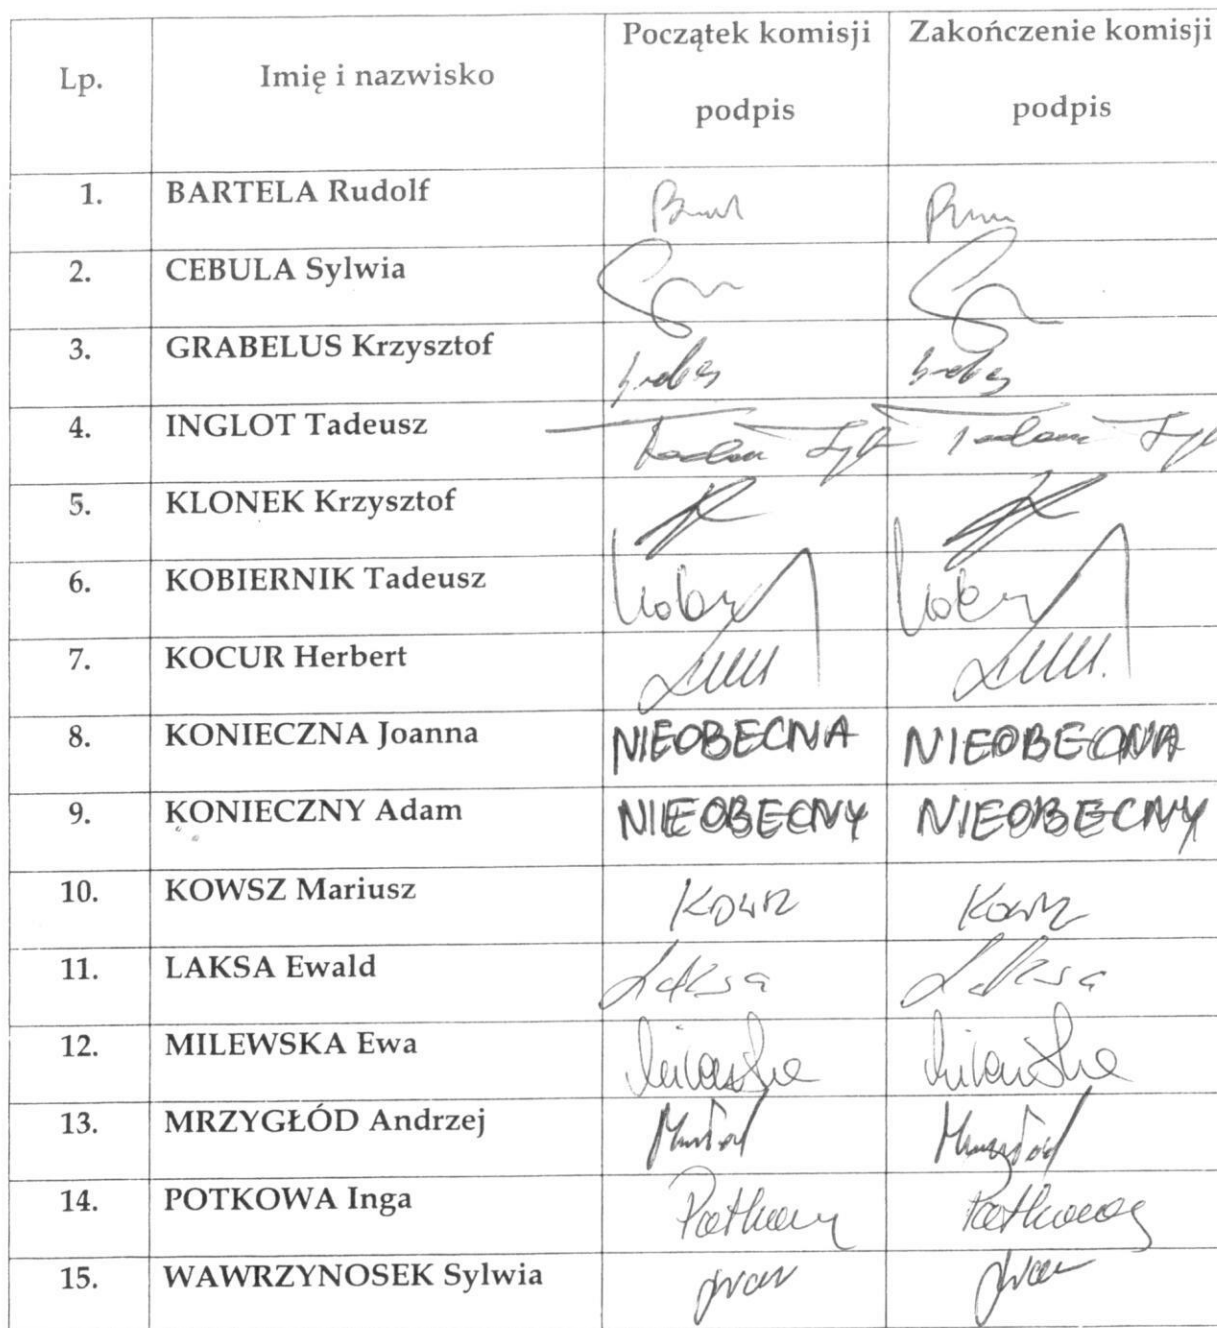 Lp. Imię i nazwisko Początek komisji podpis Zakończenie komisji podpis
1. BARTELA Rudolf
2. CEBULA Sylwia
3. GRABELUS Krzysztof
4. INGLOT Tadeusz
5. KLONEK Krzysztof
6. KOBIERNIK Tadeusz
7. KOCUR Herbert
8. KONIECZNA Joanna NIEOBECNA NIEOBECNA
9. KONIECZNY Adam NIEOBECNY NIEOBECNY
10. KOWSZ Mariusz
11. LAKSA Ewald Laksa Laksa
12. MILEWSKA Ewa Milewska Milewska
13. MRZYGŁÓD Andrzej
14. POTKOWA Inga
15. WAWRZYNOSEK Sylwia